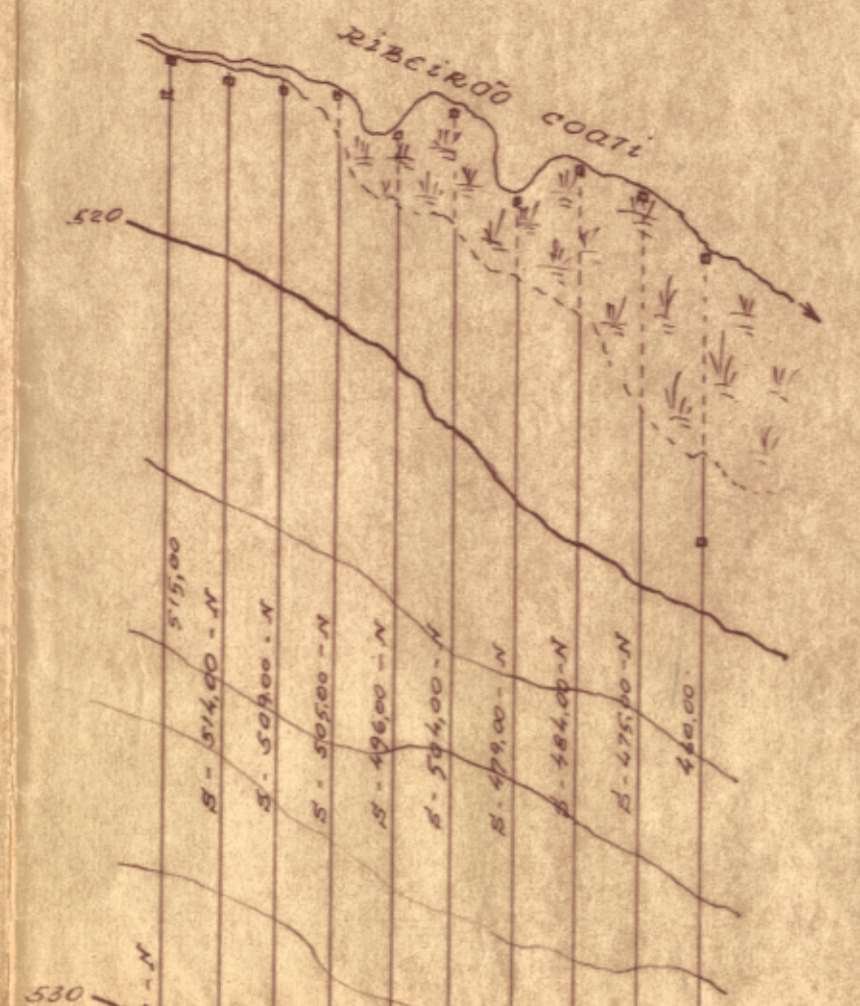 RIBEIRÃO COATI
520
515,00
S - 514,00 - N
S - 509,00 - N
S - 505,00 - N
S - 496,00 - N
S - 504,00 - N
S - 479,00 - N
S - 484,00 - N
S - 475,00 - N
460,00
- N
530